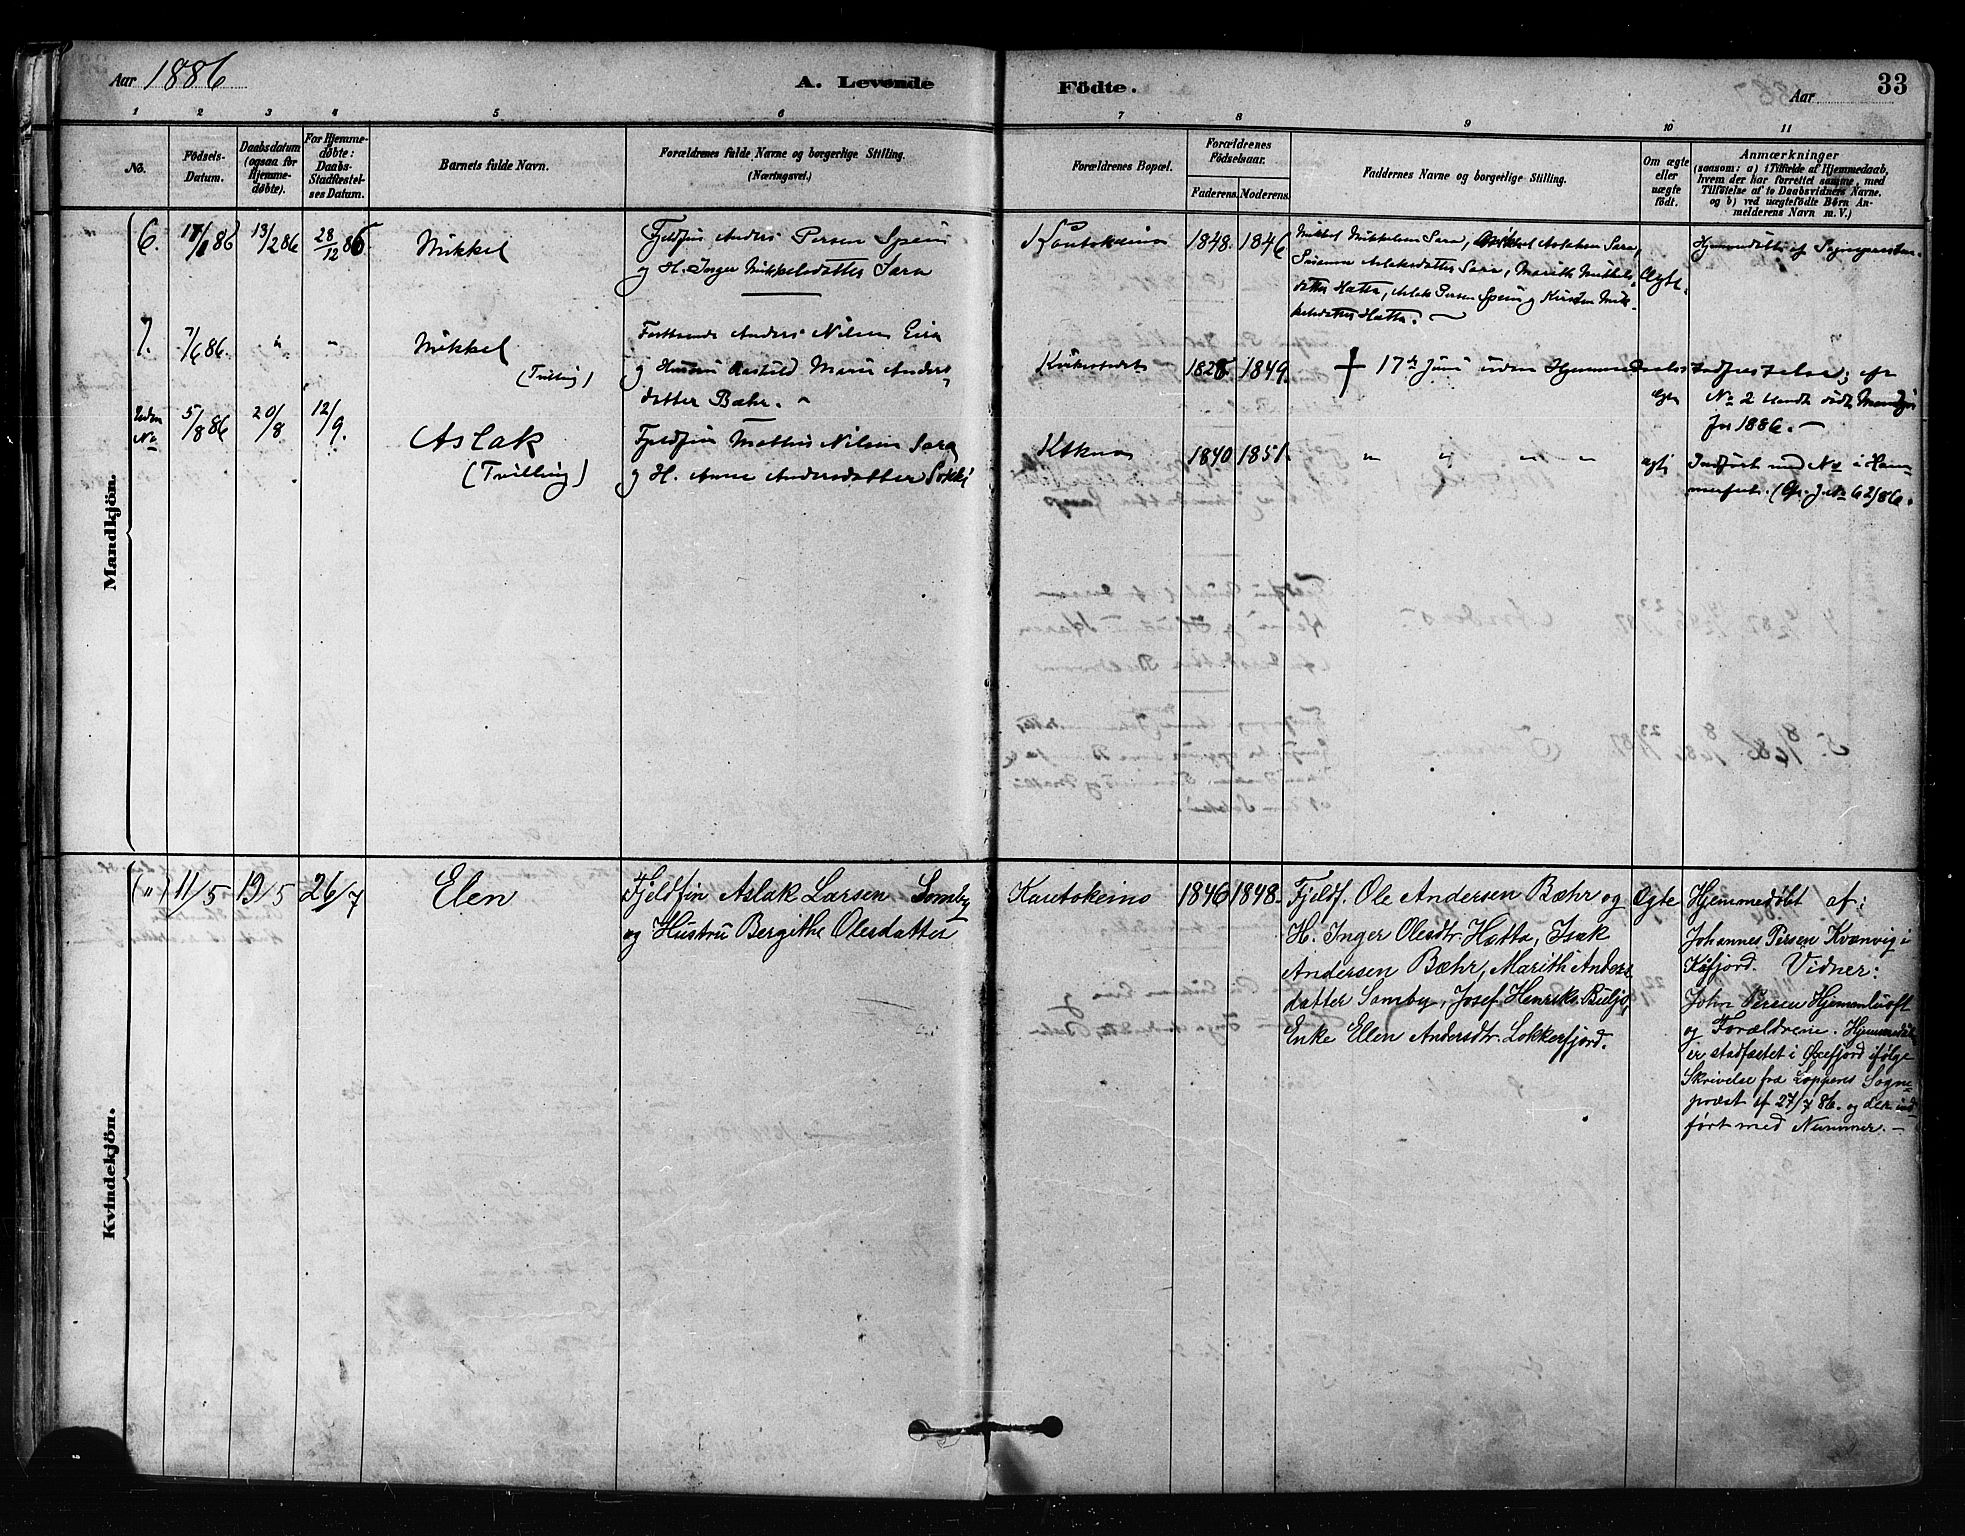 Aar 1886
A. Levende Födte.
Aar
33
1 2 3 4 5 6 7 8 9 10 11
No.
Födsels-Datum.
Daabsdatum (ogsaa for Hjemmedøbte).
For Hjemmedøbte: Daabs-Stadfæstelses Datum.
Barnets fulde Navn.
Forældrenes fulde Navne og borgerlige Stilling. (Næringsvei.)
Forældrenes Bopæl.
Forældrenes Födselsaar.
Faderens. Moderens.
Faddernes Navne og borgerlige Stilling.
Om ægte eller uægte født.
Anmærkninger
(saasom: a) i Tilfælde af Hjemmedaab,
hvem der har forrettet samme, med
Tilføielse af to Daabsvidners Navne,
og b) ved uægtefødte Börn Anmelderens Navn m. V.)
Mandkjön.
6. 86 13/2 86 28/12 86 Mikkel
Fjeldfin Anders Persen Spein
og H. Inger Mikkelsdatter Sara
Kautokeino 1848. 1846
Mikkel Mikkelsen Sara, Aslaksen Sara,
Susanna Aslaksdatter Sara, Marith Mikkels
datter Hætta, Aslak Persen Spein og Kirsten Mik
kelsdatter Hætta. —
Ægte.
Hjemmedöbt af Sognepræsten.
7. 7/6 86. " " Mikkel
(Tvilling)
Anders Nilsen Eira
og Hustru Marie Anders
datter Bæhr.
1849.
† 17de Juni uden Hjemmedaabs
stadfæstelse; cfr
No 2
1886. —
Uden No 5/8 86 20/8 12/9. Aslak
(Tvilling)
Fjeldfin Mathis Nilsen Sara
og H. Anne Andersdatter Sokki
1840 1851.
" " " "
ægte
Indført med No i Ham
merfest. (Cfr. J. No 62/86.
Kvindekjön.
(") 11/5 19/5 26/7 Elen
Fjeldfin Aslak Larsen Somby
og Hustru Bergithe Olesdatter
Kautokeino 1846 1848.
Fjeldf. Ole Andersen Bæhr og
H. Inger Olesdtr. Hætta, Isak
Andersen Bæhr, Marith Anders
datter Somby, Josef Henriks. Buljo,
Enke Ellen Andersdtr. Lokkerfjord.
Ægte
Hjemmedøbt af:
Johannes Persen Kvænvig i
Kåfjord. Vidner:
John Persen Hjemenluoft
og Forældrene. Hjemmedåb
er stadfæstet i Øxefjord ifølge
Skrivelse fra Loppens Sogne-
præst af 27/7 86. og der ind
ført med Nummer. —